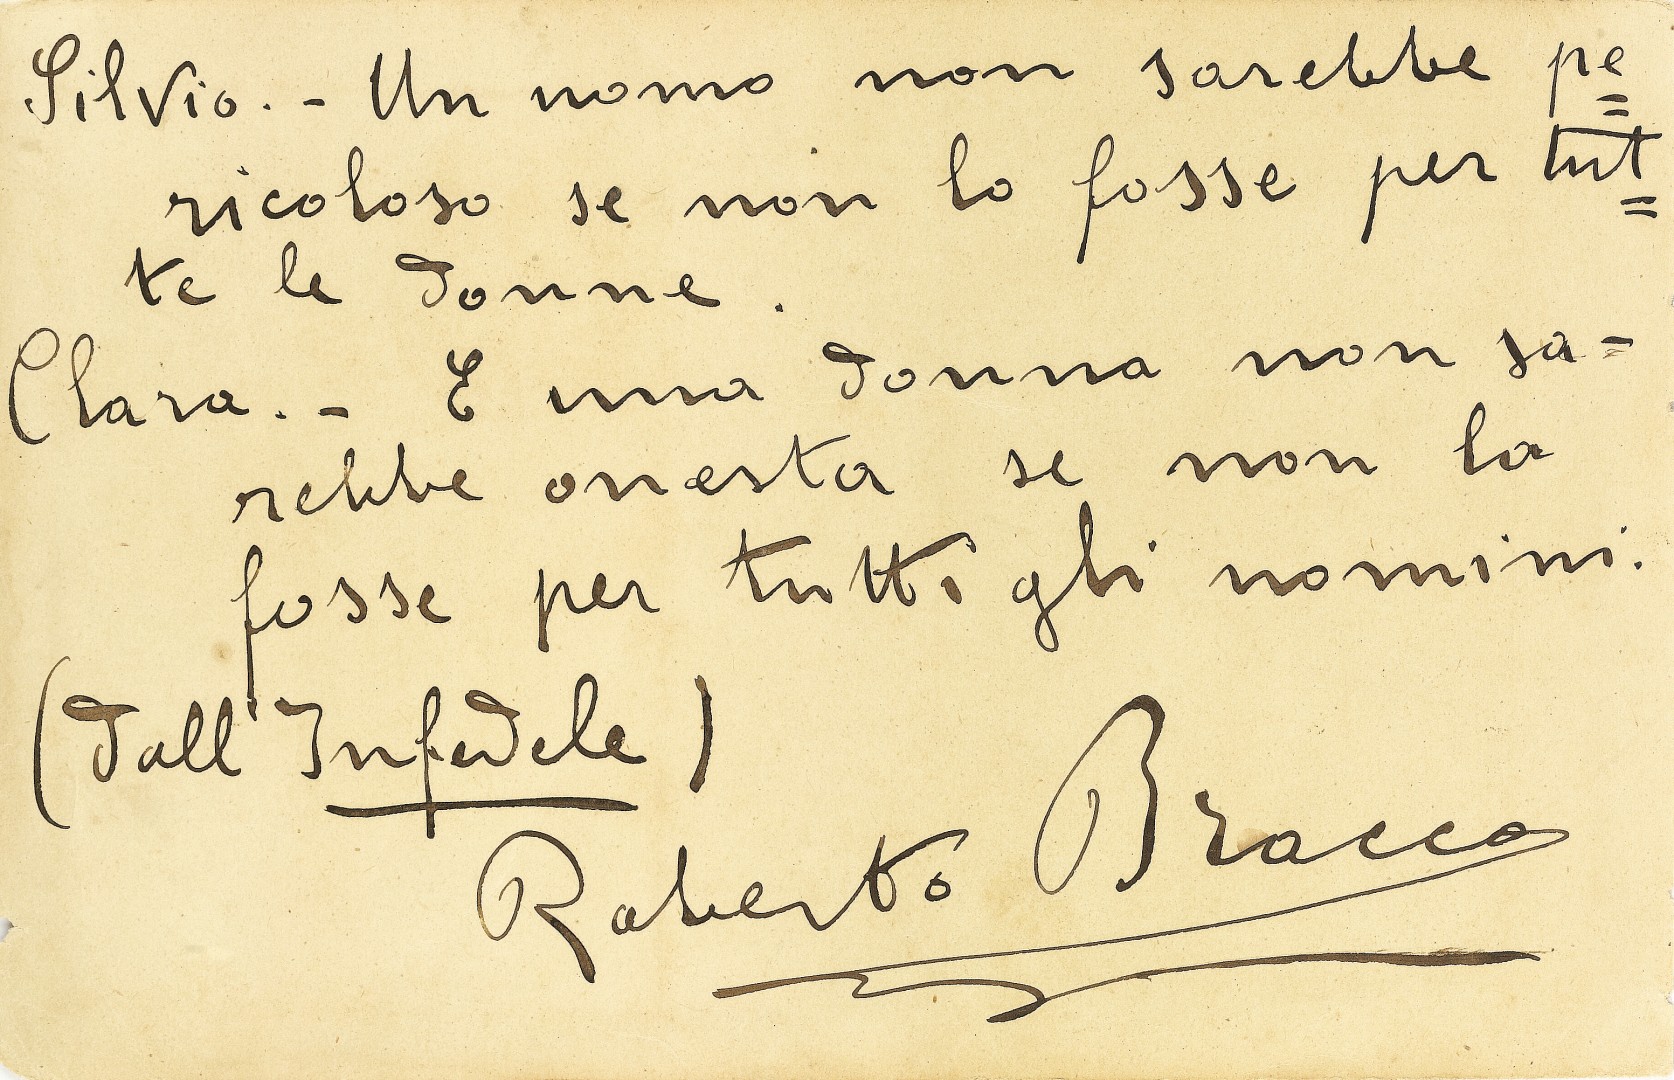 Silvio. - Un uomo non sarebbe pe=
ricoloso se non lo fosse per tut=
te le donne.
Clara. - E una donna non sa=
rebbe onesta se non la
fosse per tutti gli uomini.
(Dall'Infedele)
Roberto Bracco